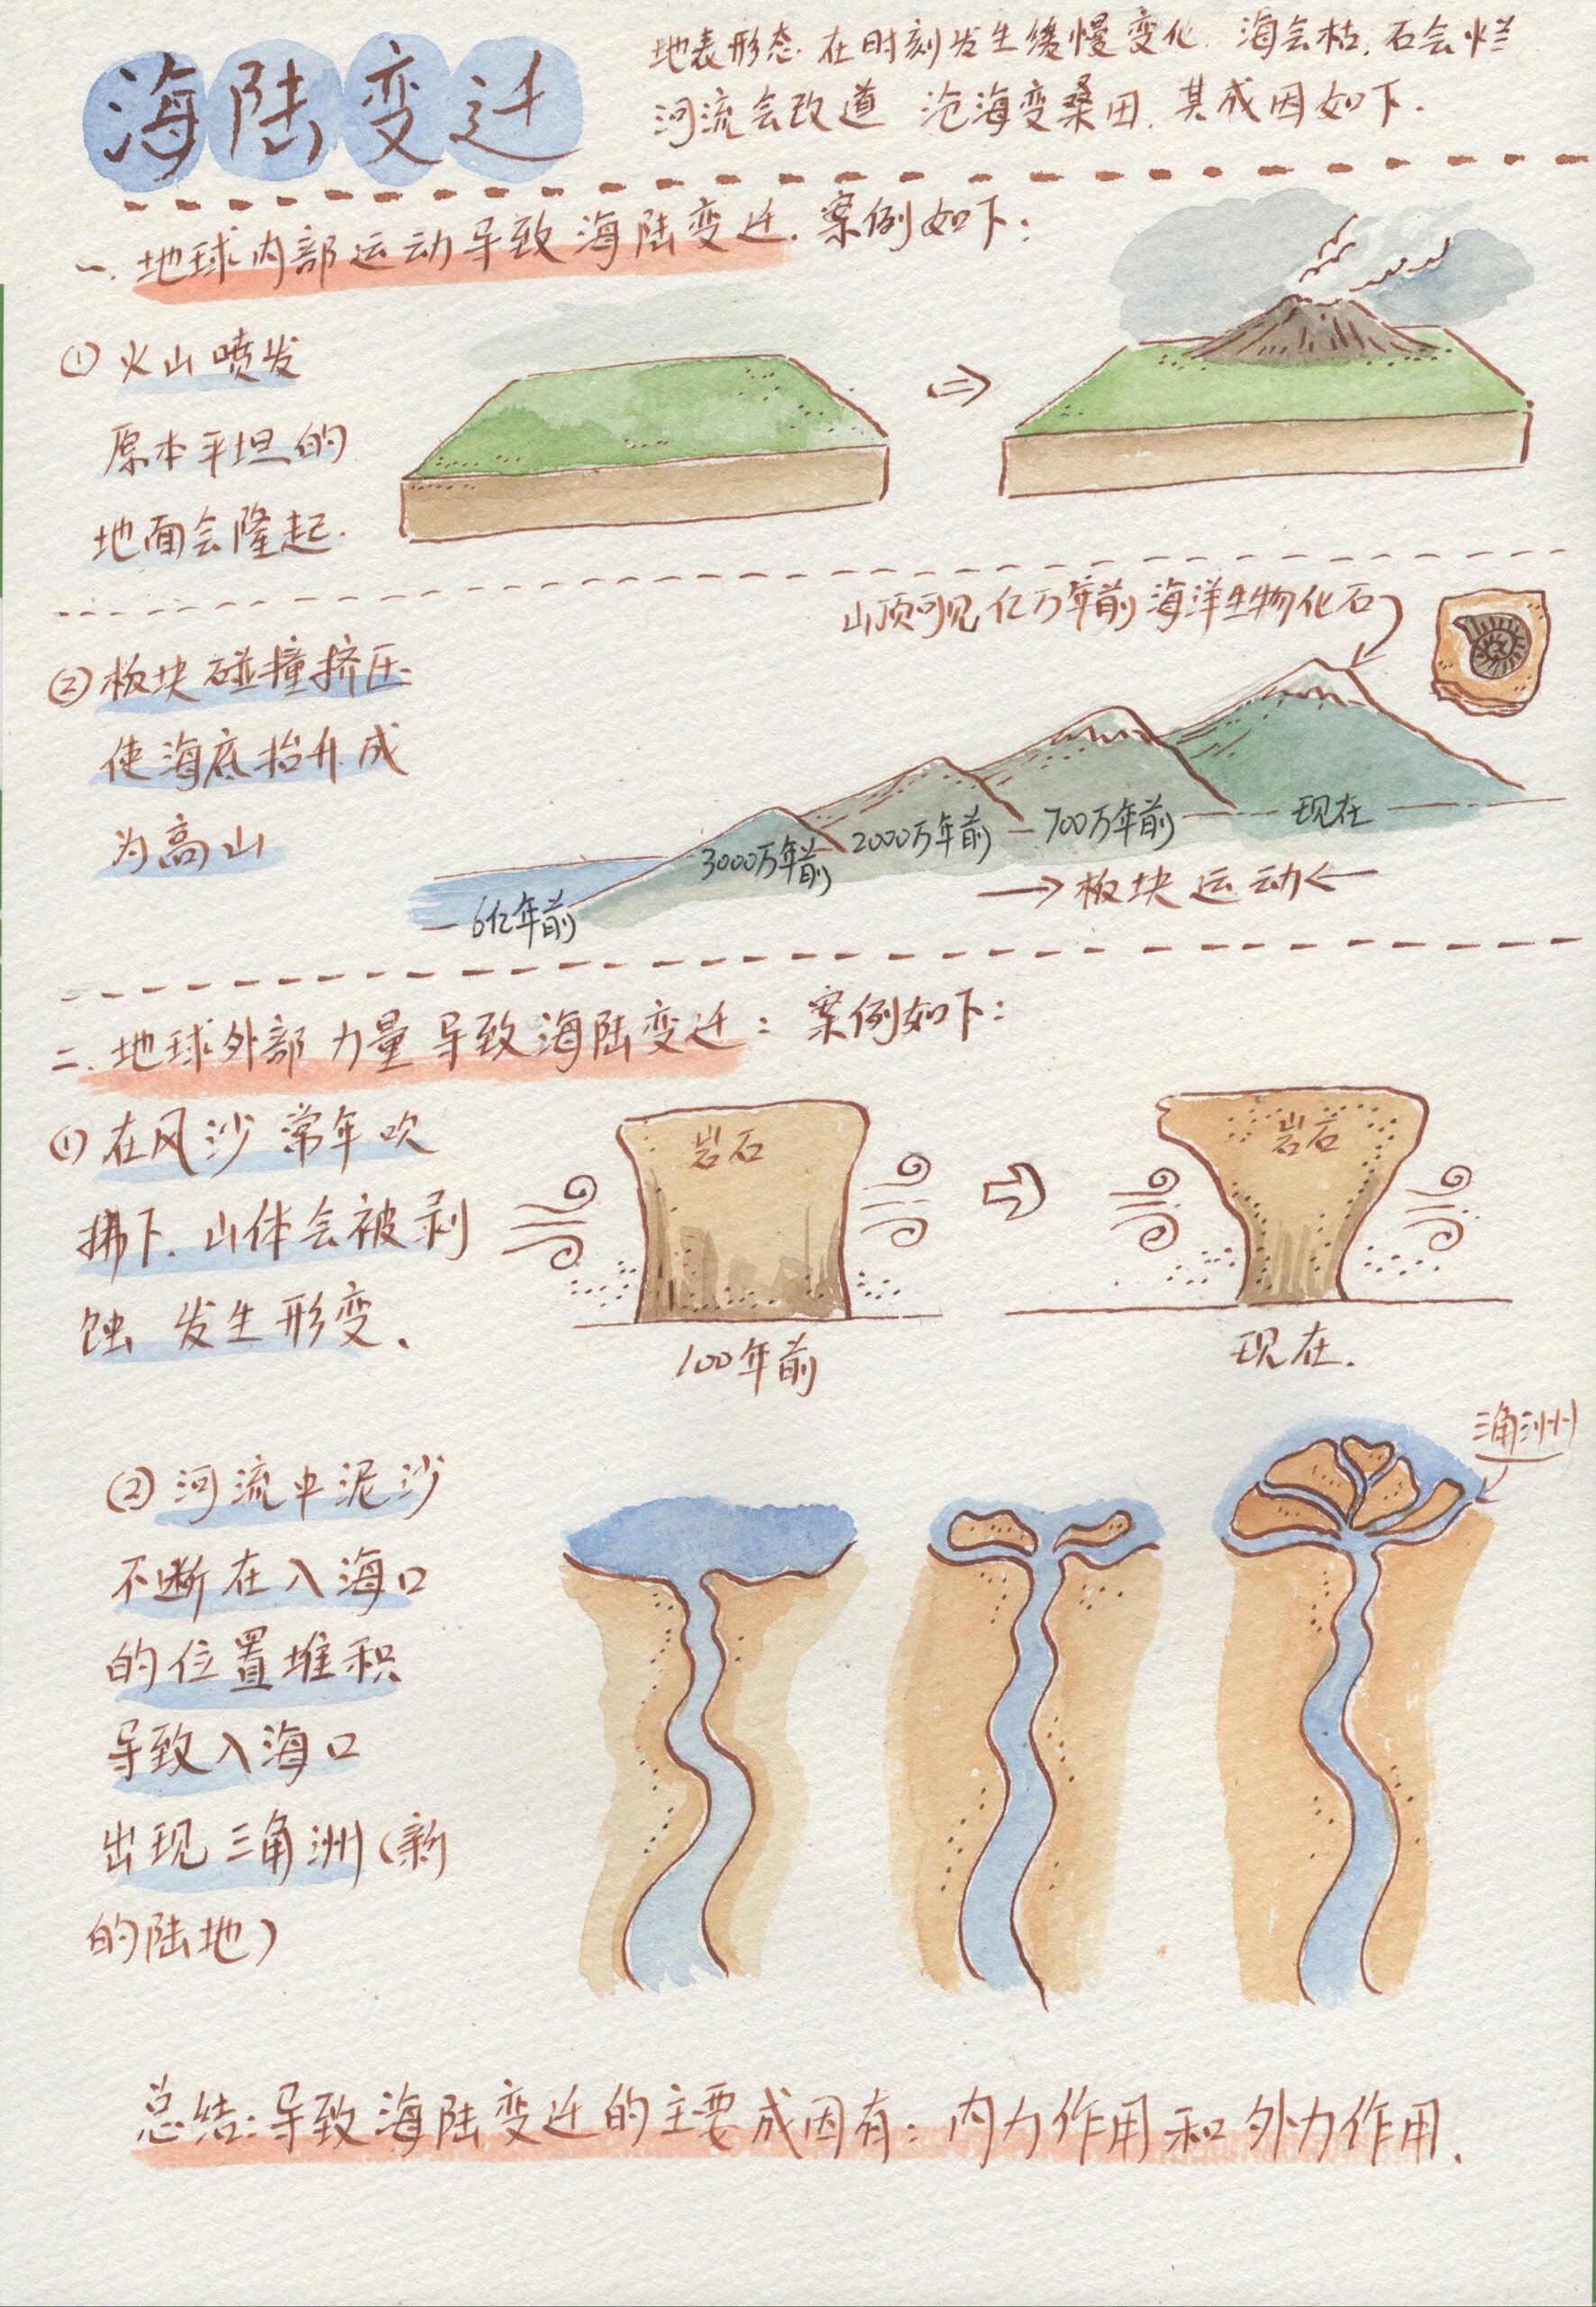 海陆变迁
地表形态.在时刻发生缓慢变化.海会枯.石会烂
河流会改道 沧海变桑田.其成因如下.
一.地球内部运动导致海陆变迁.案例如下:
①火山喷发
原本平坦的
地面会隆起.
山顶可见亿万年前海洋生物化石
②板块碰撞挤压
使海底抬升成
为高山
6亿年前
3000万年前
2000万年前
700万年前
现在
板块运动
二.地球外部力量导致海陆变迁:案例如下:
①在风沙常年吹
拂下.山体会被剥
蚀 发生形变.
岩石
岩石
100年前
现在.
②河流中泥沙
不断在入海口
的位置堆积
导致入海口
出现三角洲(新
的陆地)
三角洲
总结:导致海陆变迁的主要成因有:内力作用和外力作用.